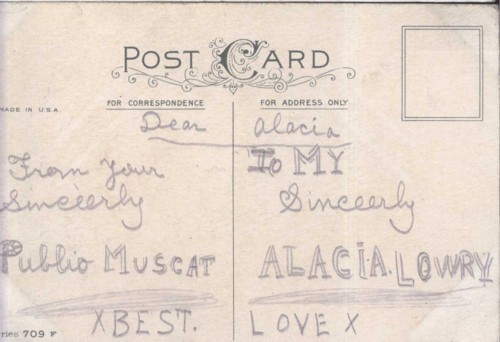 POST CARD
MADE IN U.S.A.
FOR CORRESPONDENCE
FOR ADDRESS ONLY
Dear Alacia
From Your
Sinceerly
Publio MUSCAT
To MY
Sinceerly
ALACIA. LOWRY
X BEST. LOVE X
ries 709 F